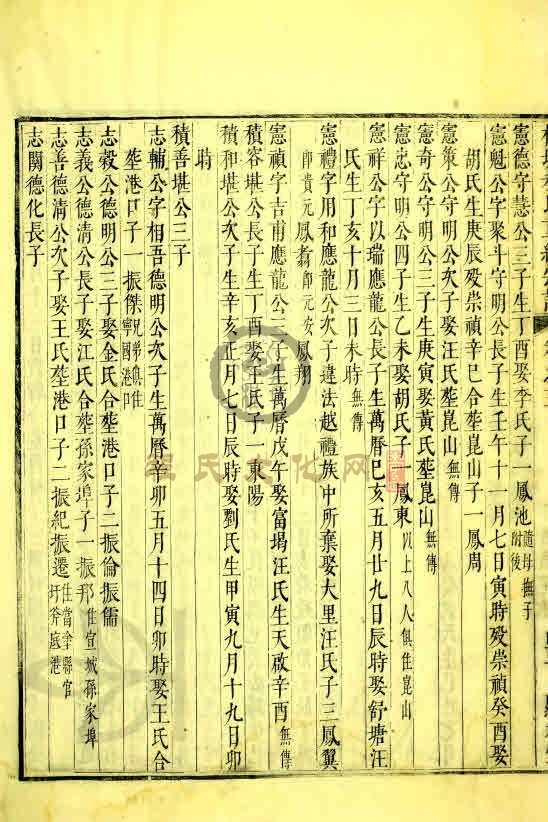 憲德守慧公三子生丁酉娶李氏子一鳳池隨母撫子附後
憲魁公字聚斗守明公長子生壬午十一月七日寅時殁崇禎癸酉娶
胡氏生庚辰殁崇禎辛巳合塟崑山子一鳳周
憲策公守明公次子娶汪氏塟崑山無傳
憲奇公守明公三子生庚寅娶黃氏塟崑山無傳
憲忠守明公四子生乙未娶胡氏子一鳳東以上八人俱住崑山
憲祥公字以瑞應龍公長子生萬曆己亥五月廿九日辰時娶舒塘汪
氏生丁亥十月三日未時無傳
憲禮字用和應龍公次子違法越禮族中所棄娶大里汪氏子三鳳翼
即貴元鳳翥即元安鳳翔
憲禎字吉甫應龍公三子生萬曆戊午娶富堨汪氏生天啟辛酉無傳
積容堪公長子生丁酉娶王氏子一東陽
積和堪公次子生辛亥正月七日辰時娶劉氏生甲寅九月十九日卯
時
積善堪公三子
志輔公字相吾德明公次子生萬曆辛卯五月十四日卯時娶王氏合
塟港口子一振傑兄弟俱住寧國港口
志毅公德明公三子娶金氏合塟港口子二振倫振儒
志義公德淸公長子娶江氏合塟孫家埠子一振邦住宣城孫家埠
志善德淸公次子娶王氏塟港口子二振紀振遷住當塗縣官圩斧底港
志閑德化長子
程氏文化网